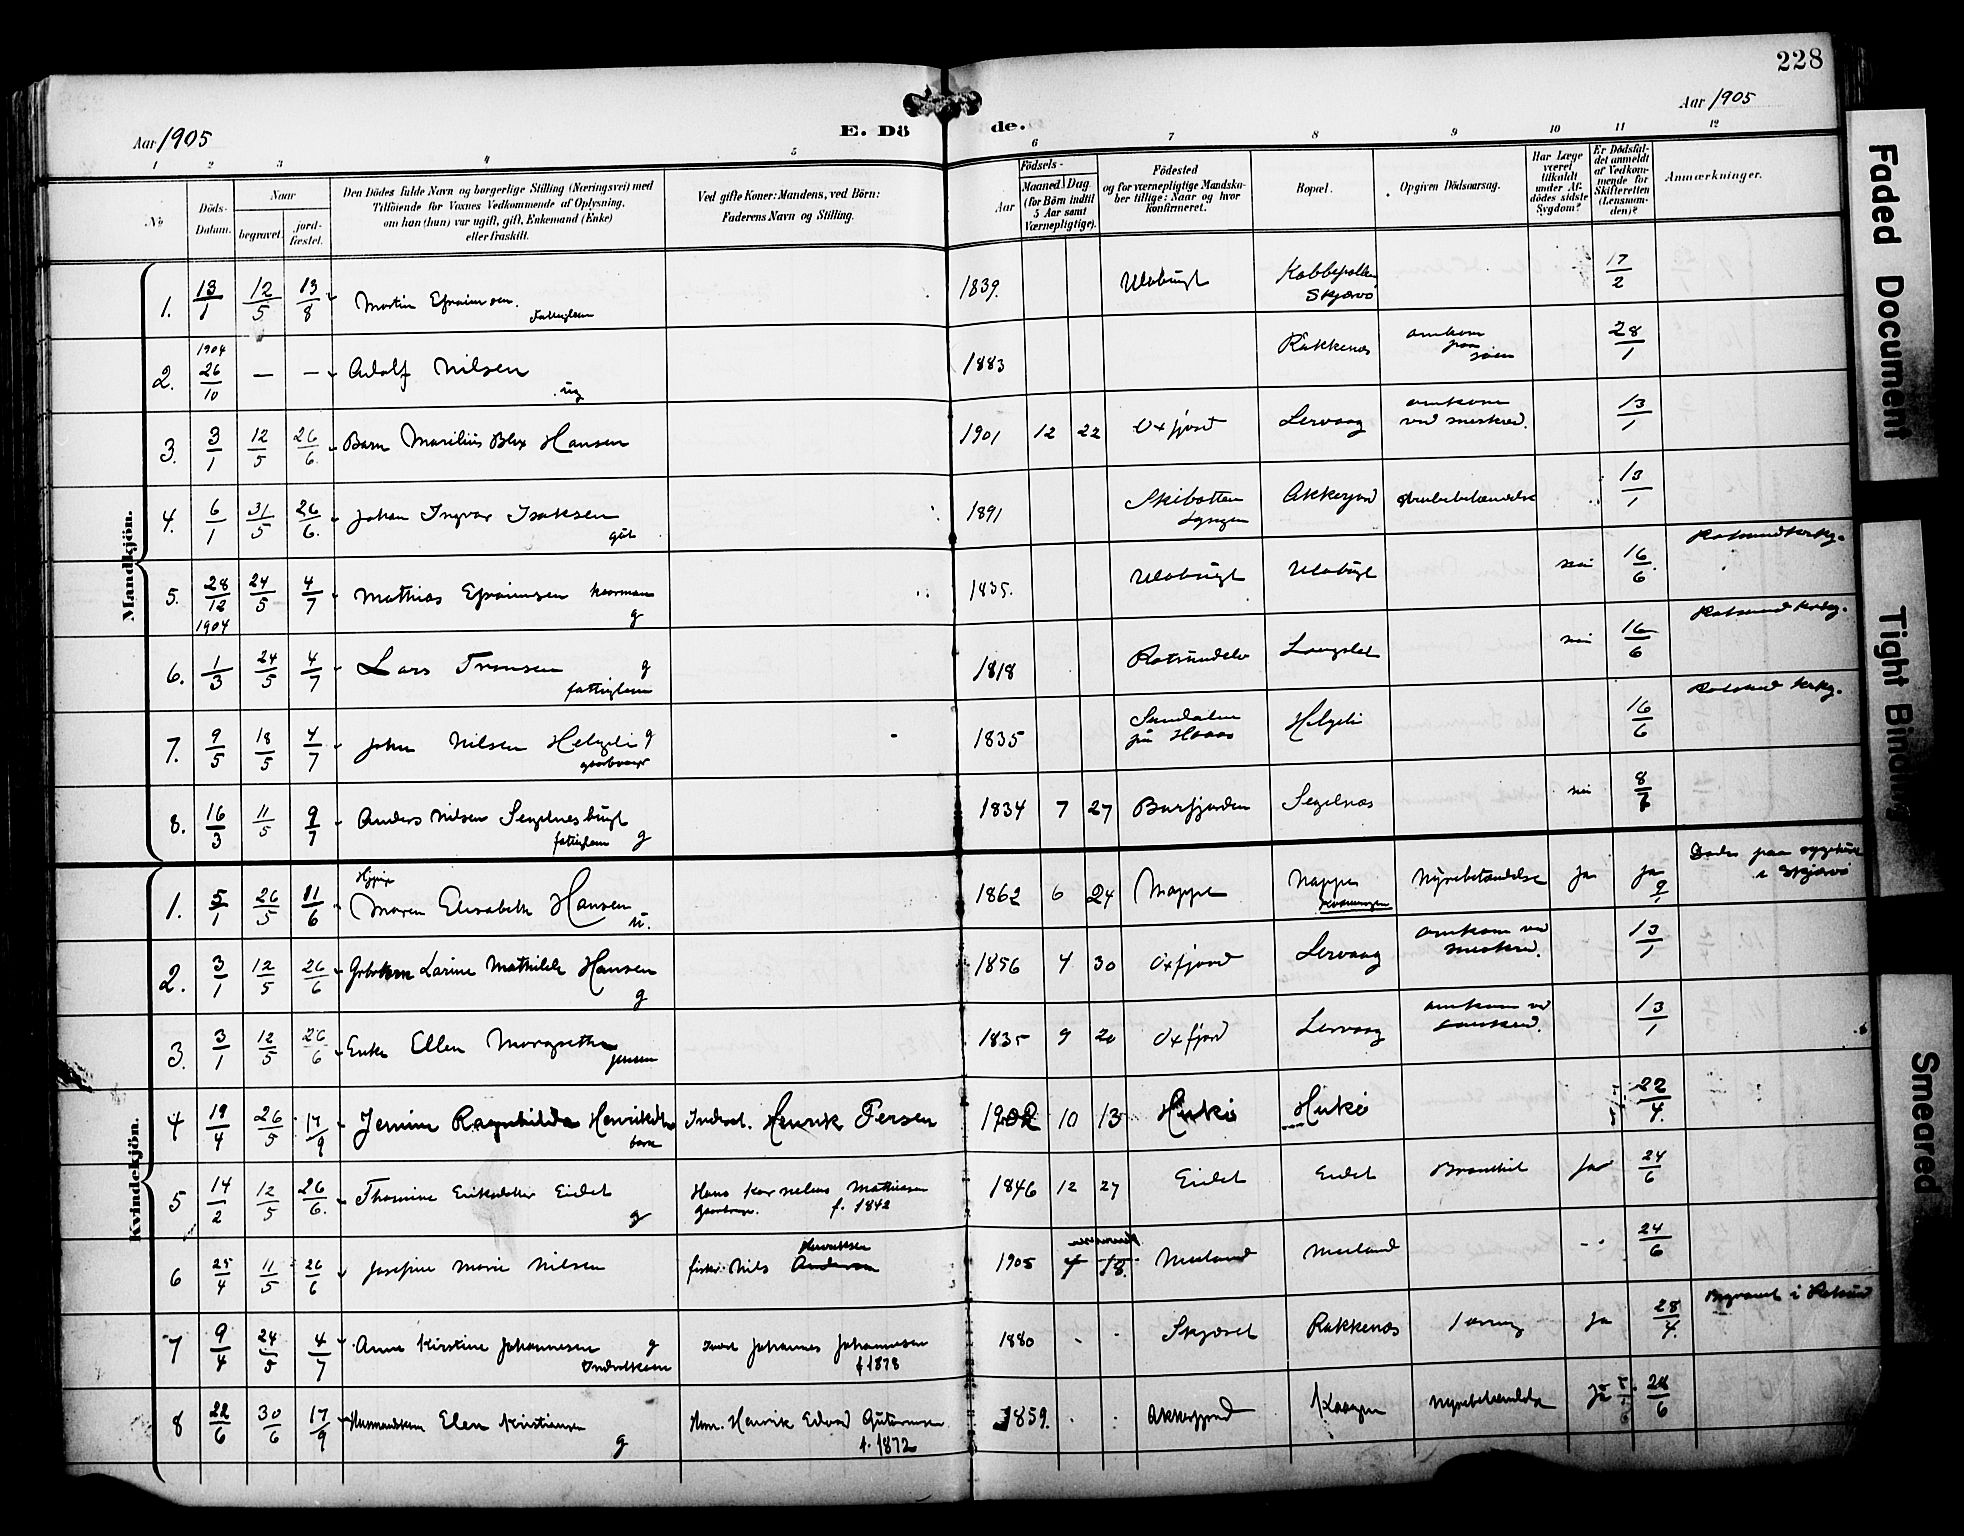 228
Aar 1905
E. Dö de.
Aar 1905
1 2 3 4 5 6 7 8 9 10 11 12
No
Döds-Datum.
Naar
begravet.
jord-fæstet.
Den Dödes fulde Navn og borgerlige Stilling (Næringsvei) med
Tilföiende for Voxnes Vedkommende af Oplysning,
om han (hun) var ugift, gift, Enkemand (Enke)
eller fraskilt.
Ved gifte Koner: Mandens, ved Börn:
Faderens Navn og Stilling.
Födsels-
Aar
Maaned. Dag
(for Börn indtil
5 Aar samt
Værnepligtige).
Födested
og for værnepligtige Mandska-
ber tillige: Naar og hvor
konfirmeret.
Bopæl.
Opgiven Dödsaarsag.
Har Læge
været
tilkaldt
under Af-
dödes sidste
Sygdom?
Er Dödsfal-
det anmeldt
af Vedkom-
mende for
Skifteretten
(Lensman-
den)?
Anmærkninger.
Mandkjön.
1. 13/1 12/5 13/8 Martin Efraimsen. Fattiglem 1839. Ulobugt Skjærvö 17/2
2. 1904 26/10 — — Adolf Nilsen ug 1883 Rakkenæs omkom paa sjøen 28/1
3. 3/1 12/5 26/6 Barn Marilius Blix Hansen 1901 12 22 Oxfjord Lervaag omkom ved sneskred. 13/1
4. 6/1 31/5 26/6. Johan Ingvar Isaksen gut 1891 Skibotten Lyngen Akkerfjord 13/1
5. 28/12 1904 24/5 4/7 Mathias Efraimsen kaarmand g 1835. Ulobugt Ulobugt nei 16/6 Rotsund kirkg.
6. 1/3 24/5 4/7 Lars Tronsen g fattiglem 1818 Rotsundelv Langslet nei 16/6 Rotsund kirkg.
7. 9/5 18/5 4/7 John Nilsen Helgeli g gaardbruger 1835 Helgeli 16/6 Rotsund kirkg.
8. 16/3 11/5 9/7 Anders Nilsen Segelnesbugt fattiglem g 1834 7 27 Burfjorden Segelnæs nei
Kvindekjön.
1. 5/1 26/5 11/6 Maren Elisabeth Hansen u. 1862 6 24 Nappe Kvænangen Nyrebetændelse Ja Ja Døde paa sygehus i Skjærvö
2. 3/1 12/5 26/6 Larine Mathilde Hansen g 1856 4 30 Oxfjord Lervaag omkom ved sneskred. 13/1
3. 3/1 12/5 26/6 Enke Ellen Margrethe Jensen 1835 9 20 Oxfjord Lervaag omkom ved sneskred. 13/1
4 19/4 26/5 17/9 Ragnhilda barn Indrol. Henrik Persen 10 13 Hukø Hukø 22/4.
5 14/2 12/5 26/6. Eidet g Hans Kornelius Mathiesen Gaardbruger. f. 1842 1846 12 27 Eidet Eidet Ja 24/6
6 25/4 11/5 26/6 Josefine Marie Nilsen fisker Nils Henriksen Andersen 1905 Meiland Meiland 24/6
7 9/4 24/5 4/7 Anna Kirstine Johannesen g Johannes Johannesen f 1878 1880 Rakkenæs Ja 28/4. Begravet i Rotsund
8 22/6 30/6 17/9 Elen Kristiansen g Henrik Edvard f. 1872 1859. Akkerfjord Nyrebetændelse Ja
Faded Document
Tight Binding
Smeared